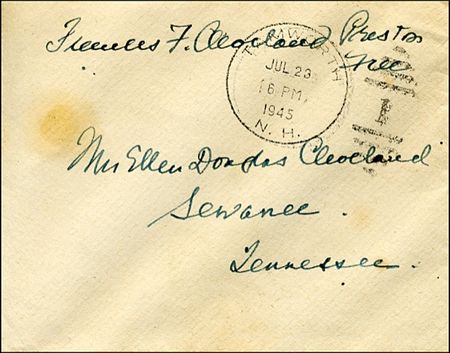 Frances F. Cleveland Preston
Free
TAMWORTH
JUL 23
6 PM
1945
N. H.
1
Mrs Ellen Douglas Cleveland
Sewanee.
Tennessee.